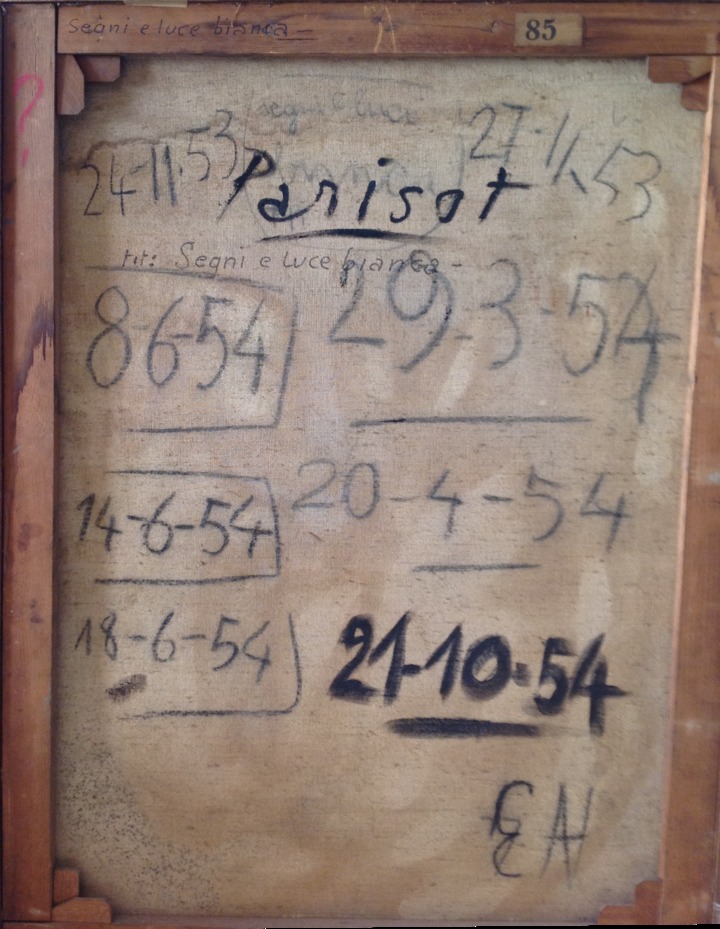 Segni e luce bianca —
85
?
segni e luce
24-11-53 bianca 27-11-53
Parisot
tit: Segni e luce bianca -
8-6-54 29-3-54
14-6-54 20-4-54
18-6-54 21-10-54